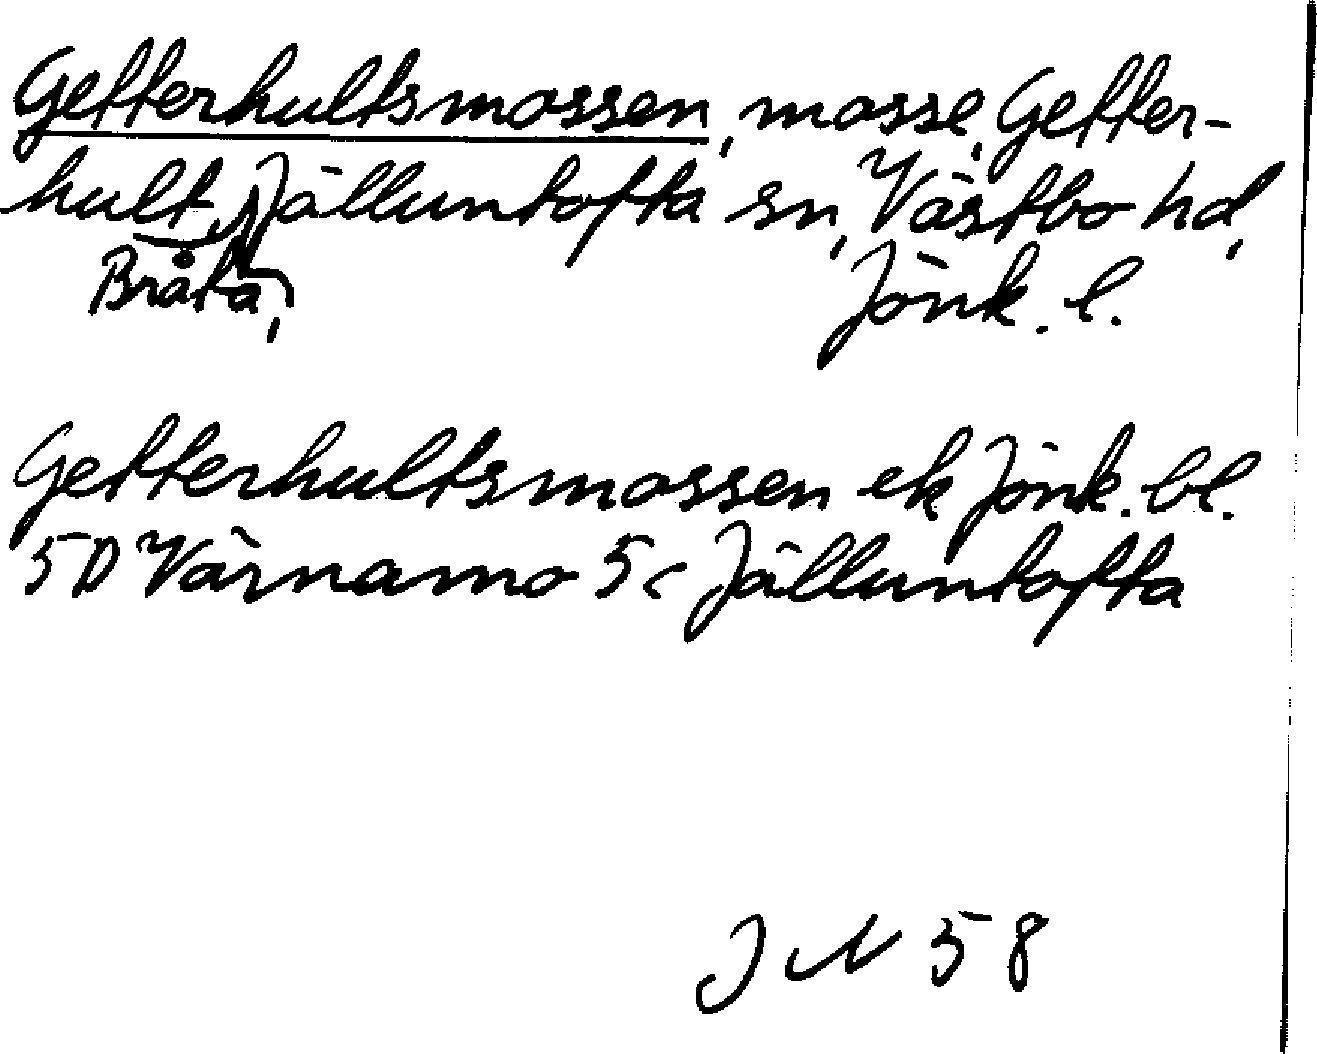 Getterhultsmossen, mosse, Getter-
hult, Jälluntofta sn, Västbo hd,
Bråta, Jönk. l.
Getterhultsmossen ek Jönk. bl.
5D Värnamo 5c Jälluntofta
58